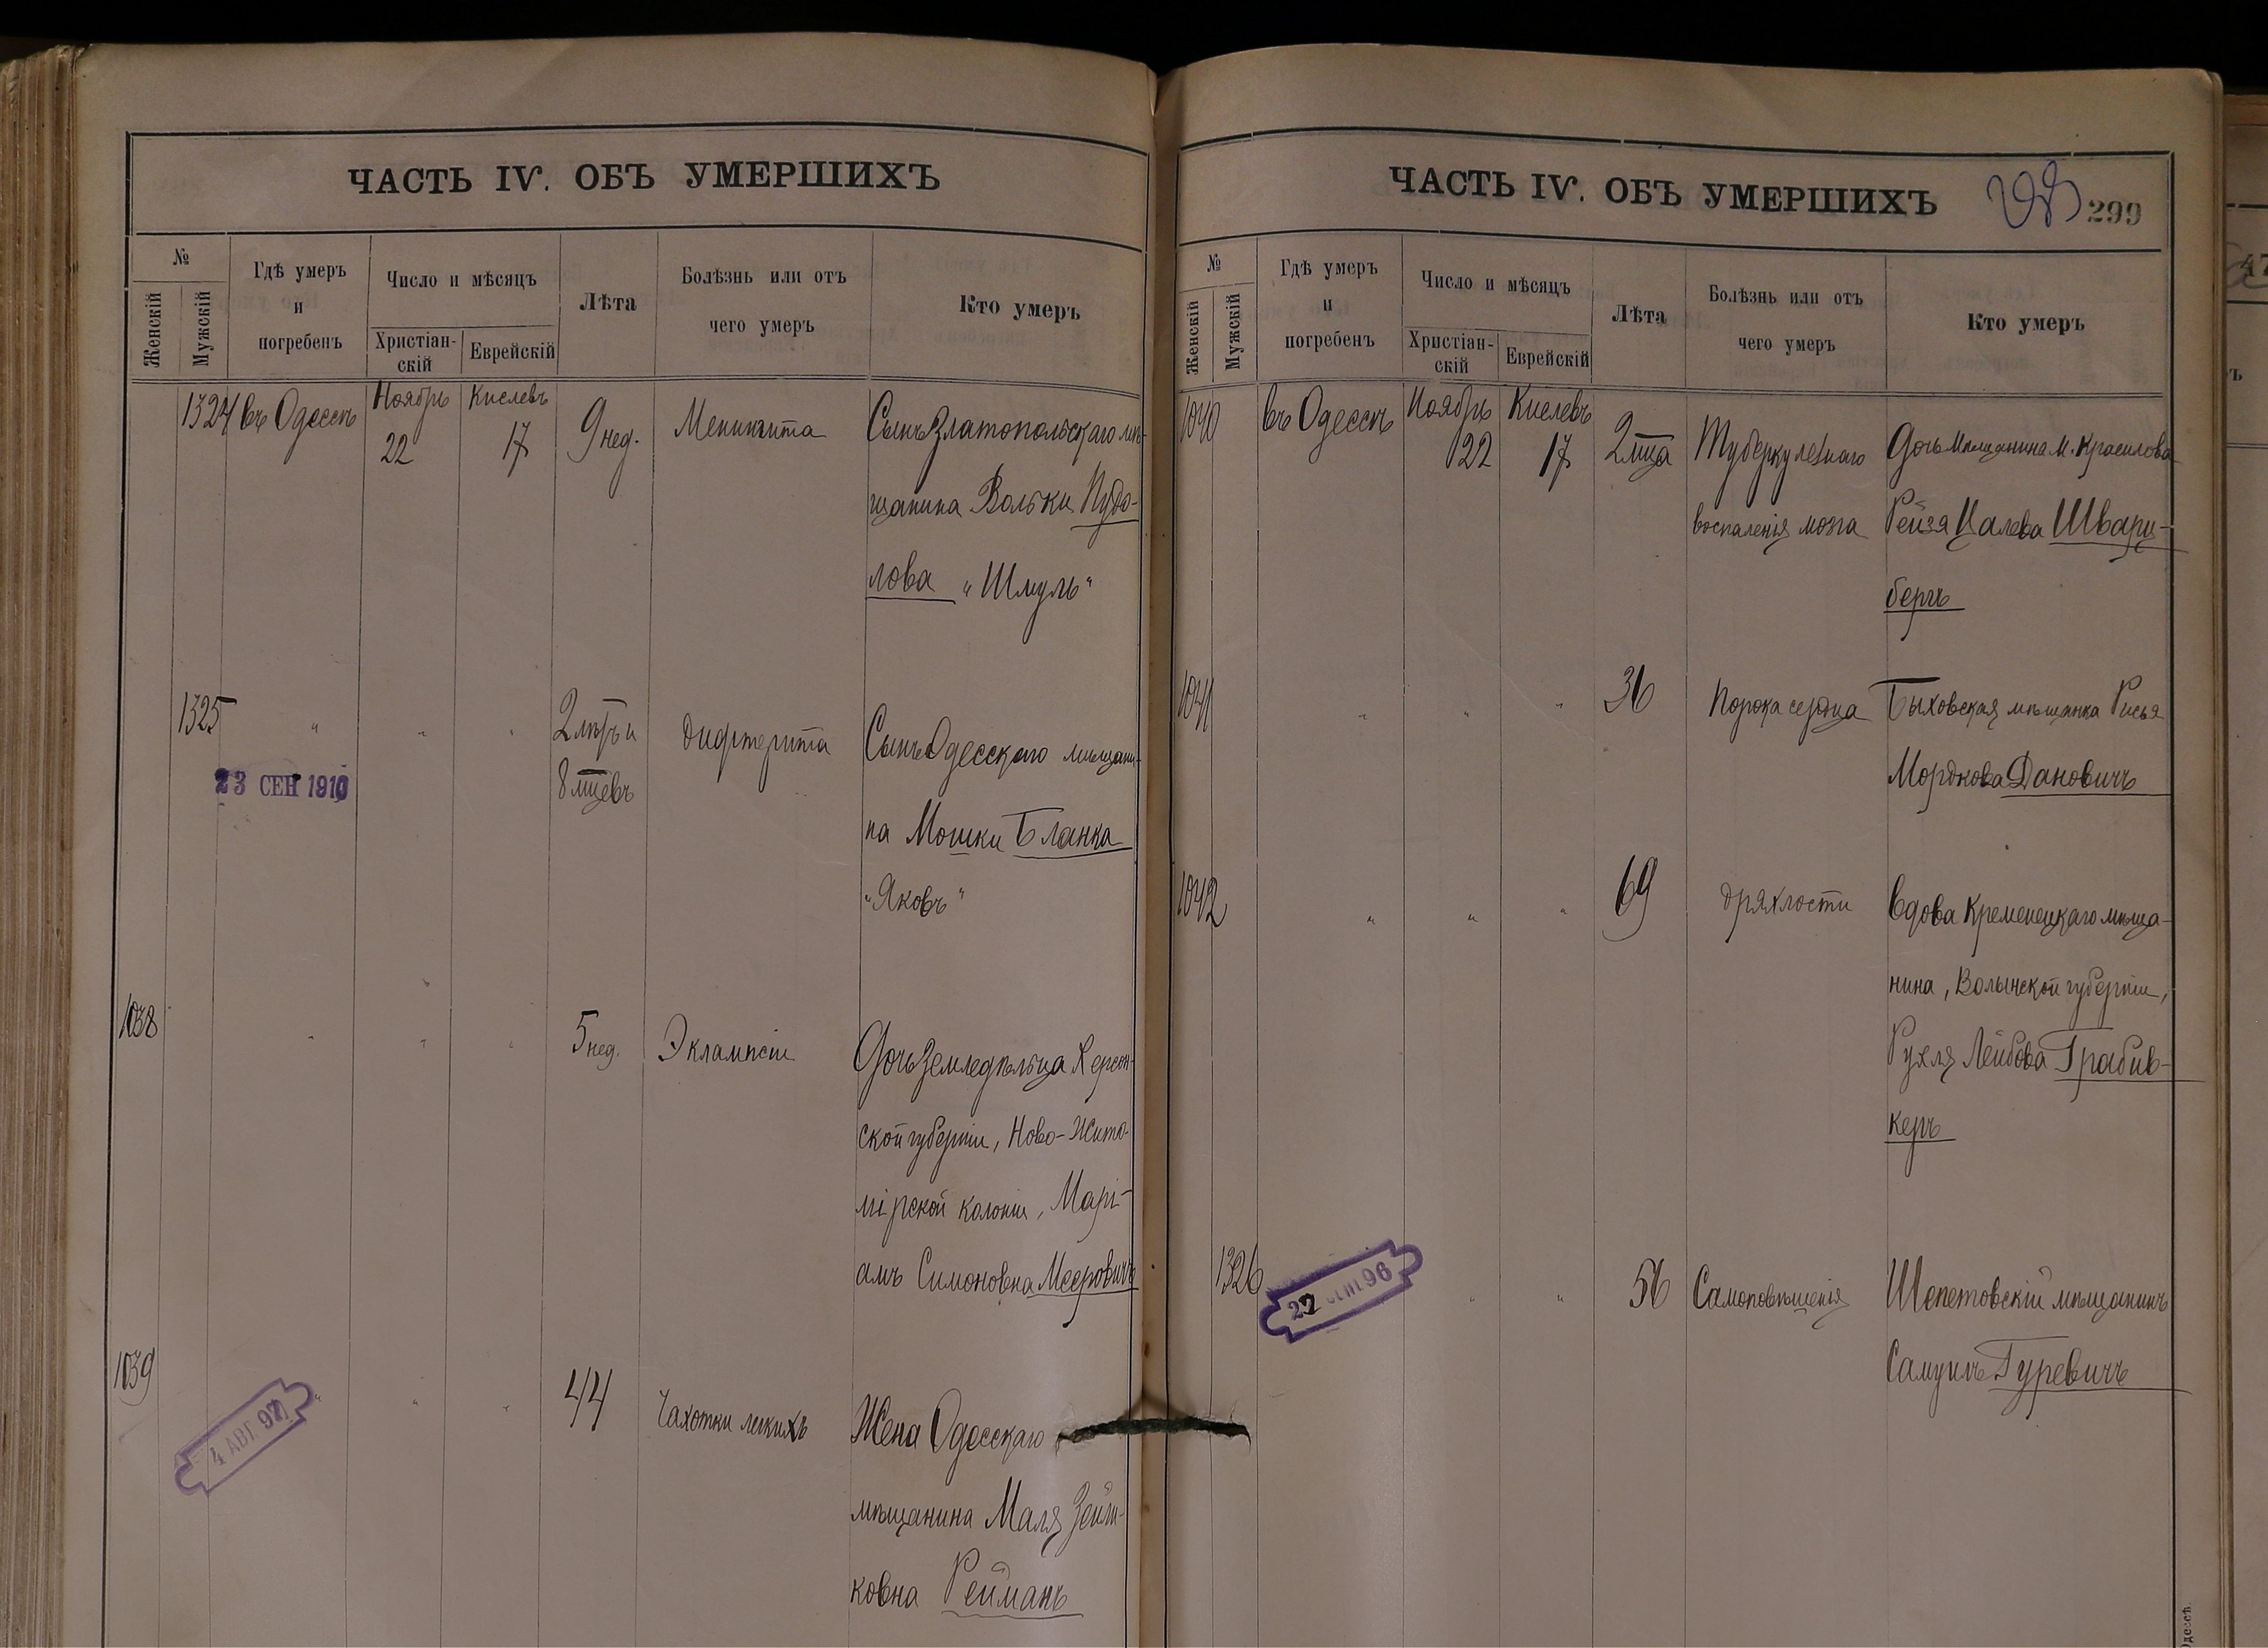 ЧАСТЬ IV. ОБЪ УМЕРШИХЪ
№
Женскій
Мужскій
Гдѣ умеръ
и
погребенъ
Число и мѣсяцъ
Христіан-
скій
Еврейскій
Лѣта
Болѣзнь или отъ
чего умеръ
Кто умеръ
1324 въ Одессѣ Ноябрь Кислевъ 9 нед. Менингита Сынъ Златопольскаго мѣ-
22 17
щанина Вольки Пудо-
лова „Шмуль“
1325 " " " 2 лѣтъ и Дифтерита Сынъ Одесскаго мѣщани-
23 СЕН 1910 8 мцевъ
на Мошки Бланка
„Яковъ“
1038 " " " 5 нед. Эклампсіи Дочь Земледѣльца Херсон-
ской губерніи, Ново-Жито-
мірской колоніи, Марі-
амъ Симоновна Мееровичъ
1039 " " " 44 Чахотки легкихъ Жена Одесскаго
4 АВГ 97
мѣщанина Маля Зейли-
ковна Рейманъ
ЧАСТЬ IV. ОБЪ УМЕРШИХЪ
299
№
Женскій
Мужскій
Гдѣ умеръ
и
погребенъ
Число и мѣсяцъ
Христіан-
скій
Еврейскій
Лѣта
Болѣзнь или отъ
чего умеръ
Кто умеръ
1040 въ Одессѣ Ноябрь Кислевъ 2 мца Туберкулезнаго Дочь Мѣщанина М. Красилова
22 17
воспаленія мозга Рейзя Цалева Шварц-
бергъ
1041 " " " 36 Порока сердца Быховская мѣщанка Рися
Мордкова Дановичъ
1042 " " " 69 Дряхлости Вдова Кременецкаго мѣща-
нина, Волынской губерніи,
Рухля Лейбова Грабив-
керъ
1326 " " 56 Самоповѣшенія Шепетовскій мѣщанинъ
22 СЕН 96
Самуилъ Гуревичъ